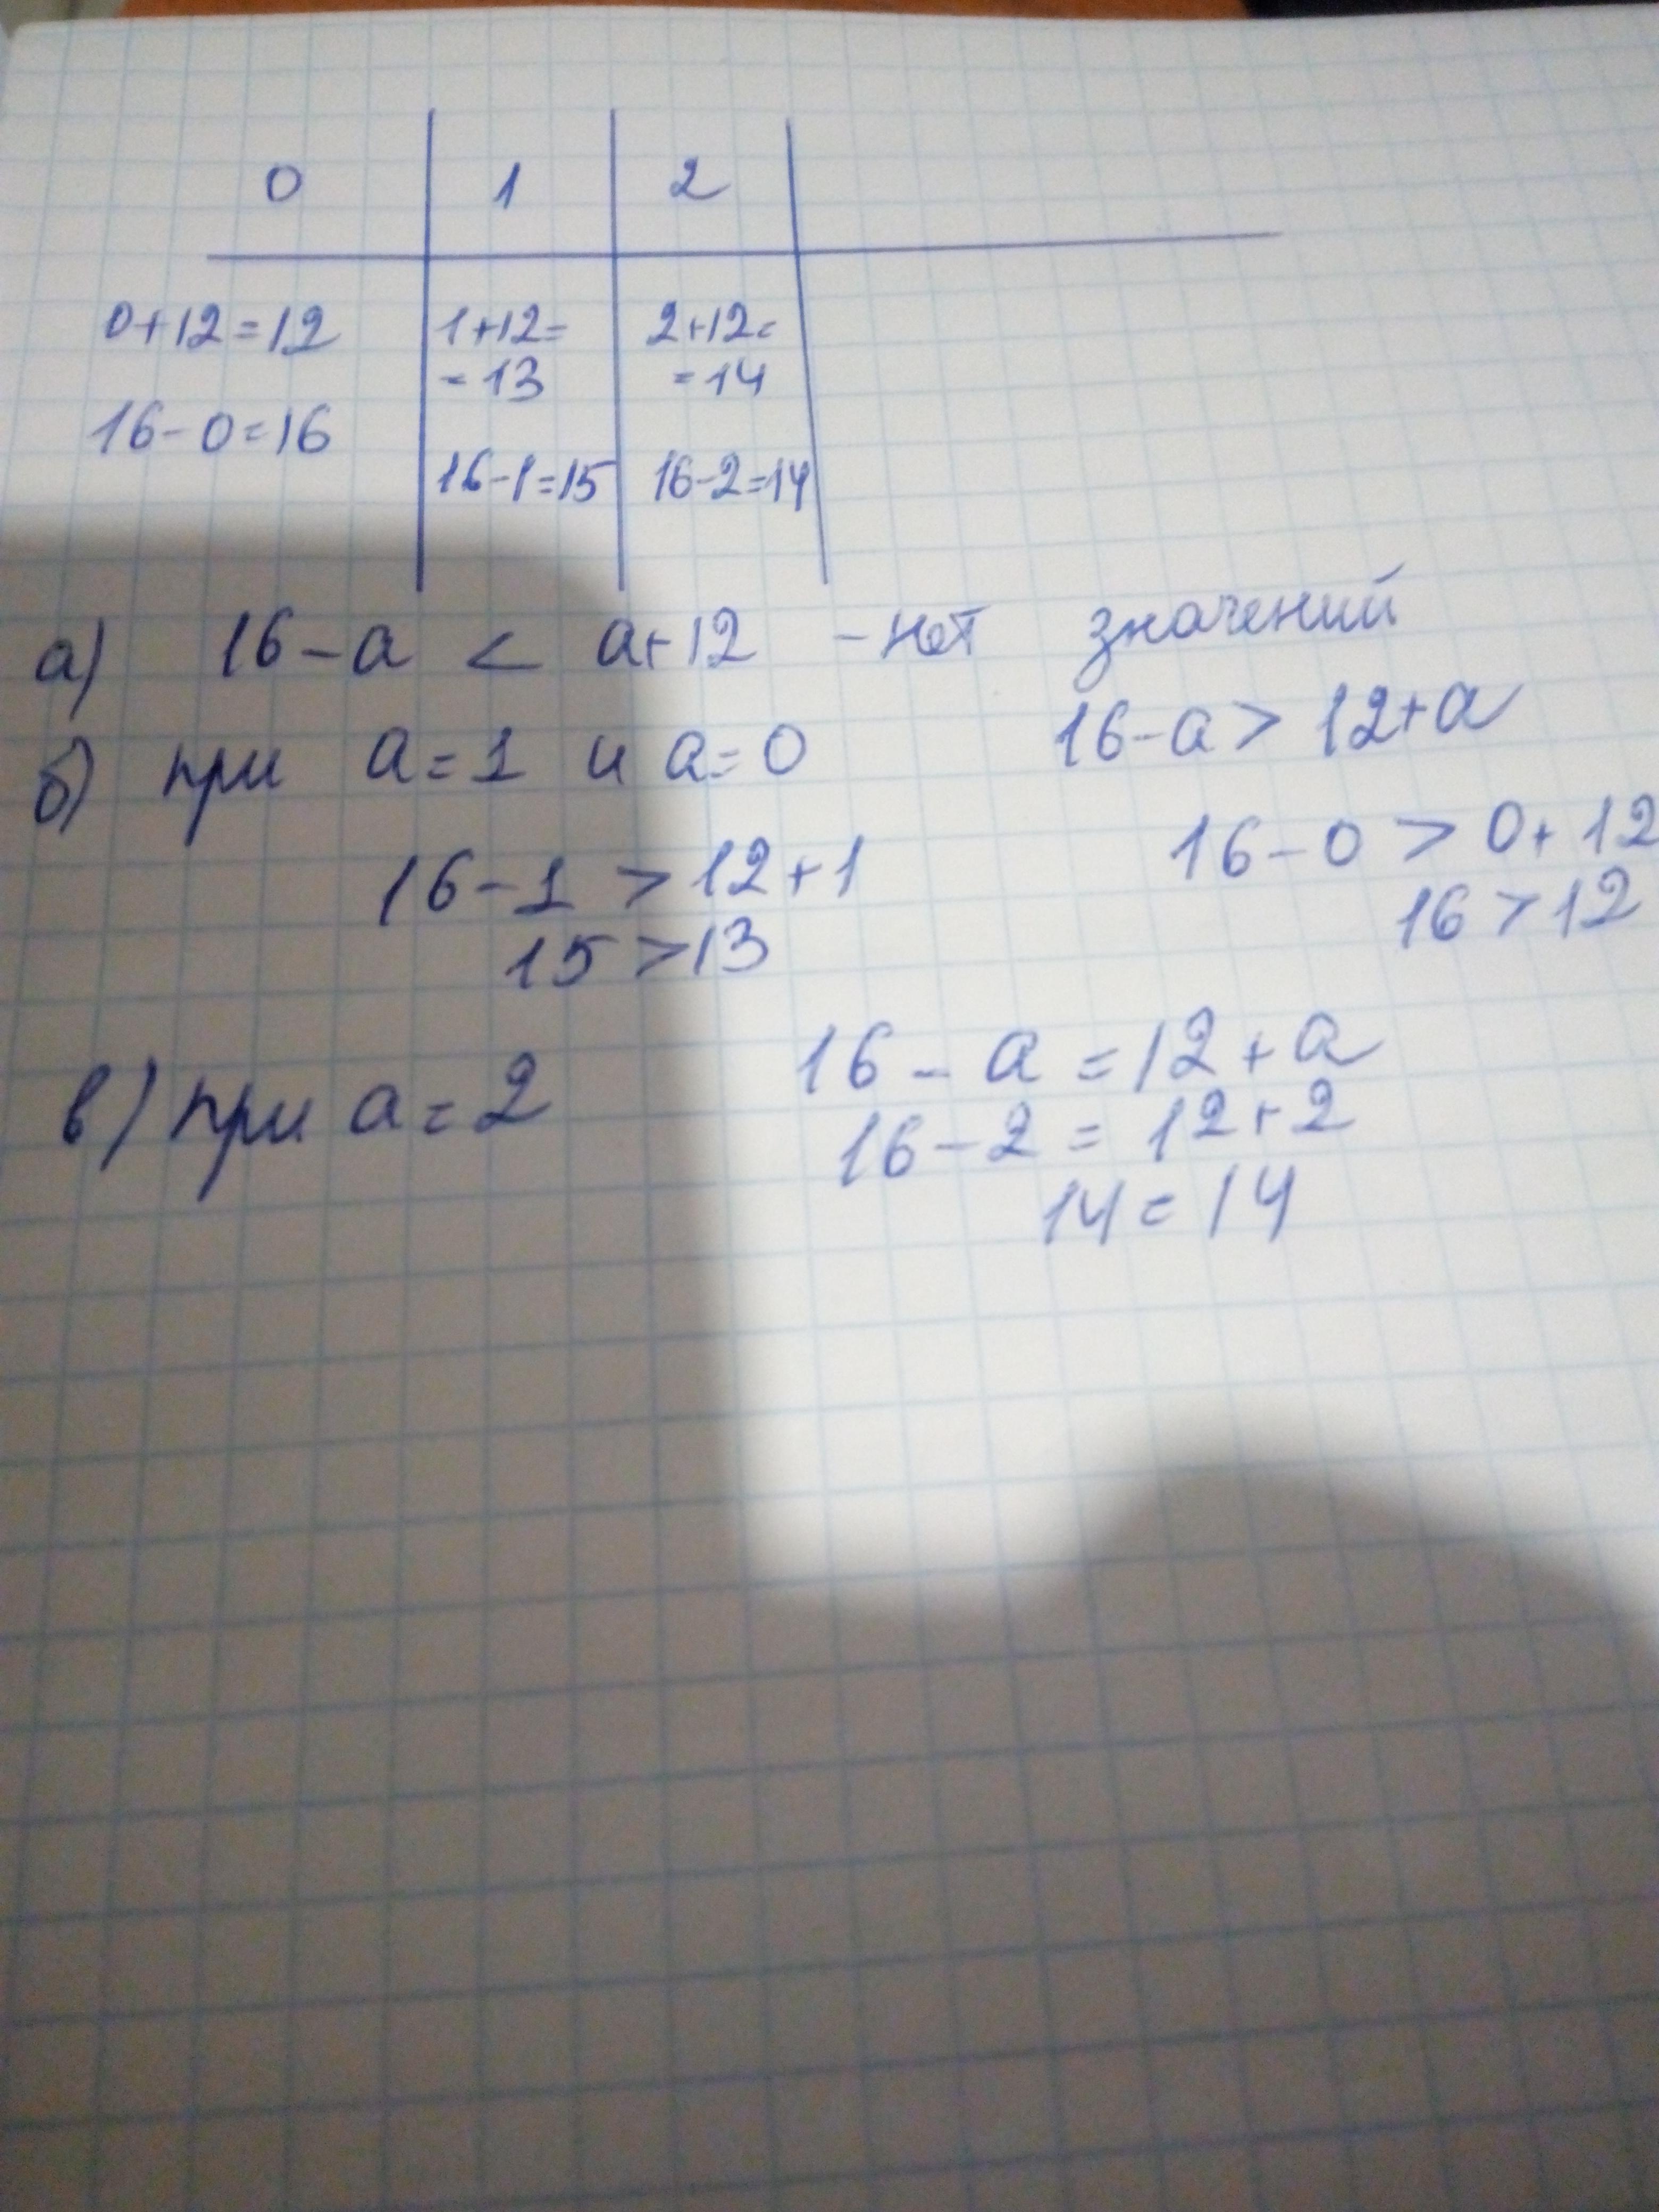 0 1 2
0+12=12 1+12= 2+12=
=13 =14
16-0=16
16-1=15 16-2=14
а) 16-а < а+12 - нет значений
б) при а=1 и а=0 16-а > 12+а
16-1 > 12+1 16-0 > 0+12
15 > 13 16 > 12
в) при а=2 16-а=12+а
16-2=12+2
14=14